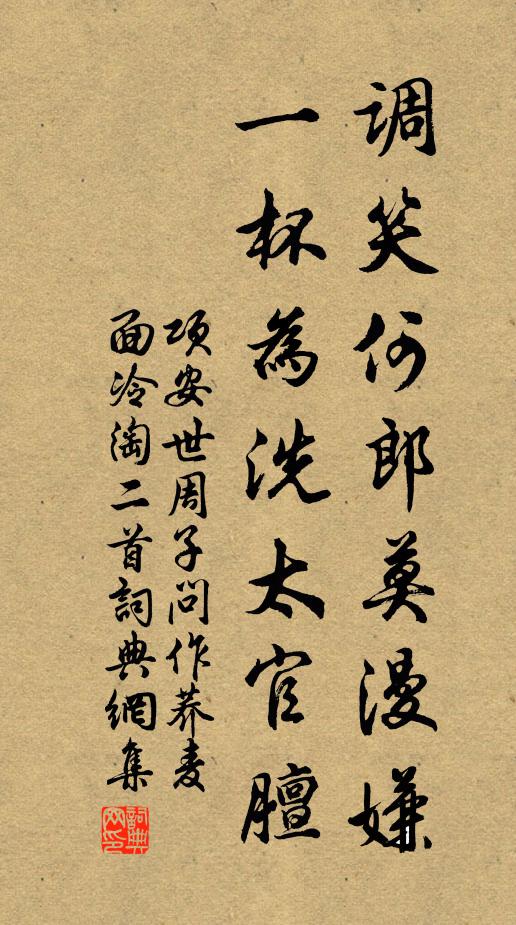 调笑何郎莫漫嫌
一杯為洗太官膻
项安世周子问作荞麦
面冷淘二首詞典網集
詞典网印